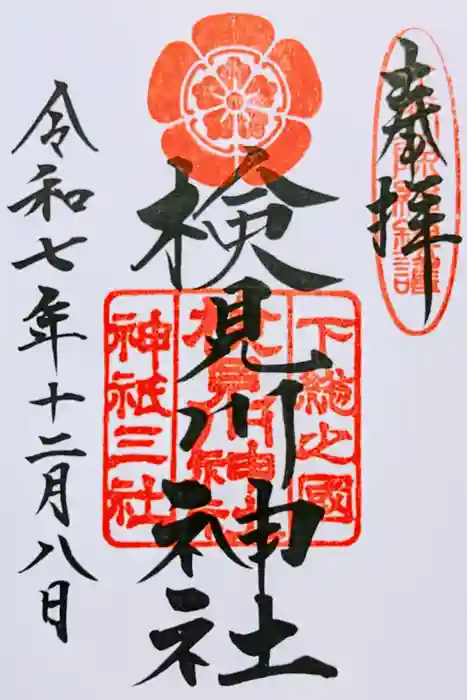 奉拝
下総之國
検見川神社
神祇三社
令和七年十二月八日